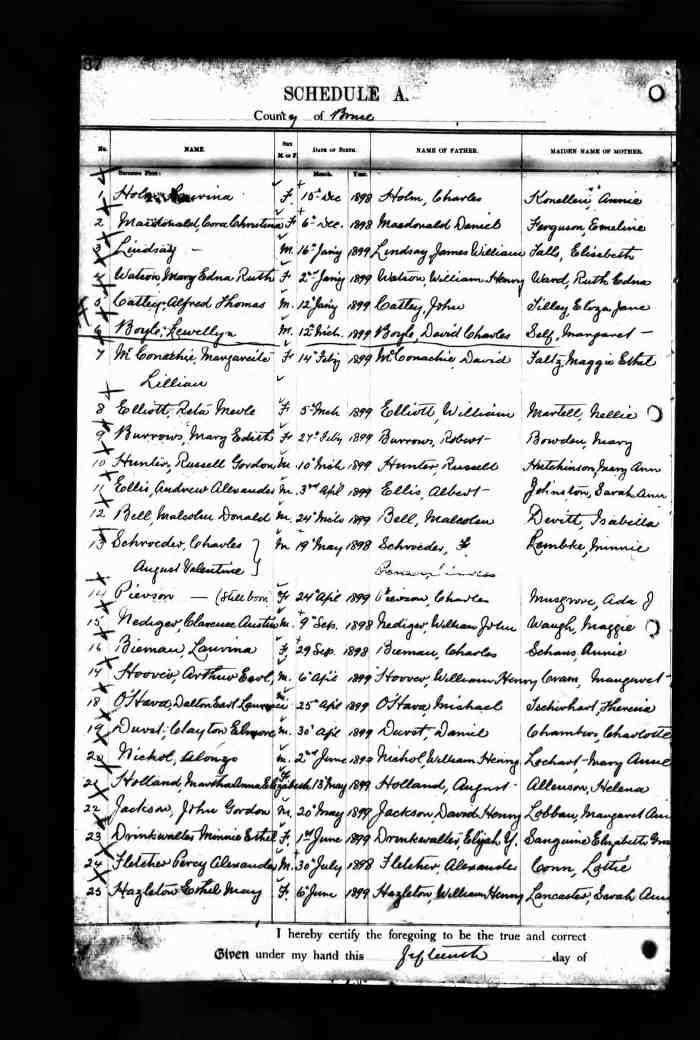 37
SCHEDULE A.
County of Bruce
No. NAME. SEX M. or F. DATE OF BIRTH. NAME OF FATHER. MAIDEN NAME OF MOTHER.
Surname First: Month. Year.
1 Holm, Lavrina F. 15th Dec 1898 Holm, Charles Annie
2 Macdonald, Cora Christina F 6th Dec. 1898 Macdonald Daniel Ferguson, Emeline
3 Lindsay — M. 16th Jan'y 1899 Lindsay, James William Falls, Elizabeth
4 Watson, Mary Edna Ruth F 2nd Jan'y 1899 Watson, William Henry Ward, Ruth Edna
5 Cattey, Alfred Thomas M. 12th Jan'y 1899 Catley, John Tilley, Eliza Jane
6 Boyle, Lewellyn M. 12th Mch. 1899 Boyle, David Charles Self, Margaret —
7 McConachie, Margareite F 14th Feb'y 1899 McConachie, David Faltz, Maggie Ethel
Lillian
8 Elliott, Reta Merle F 5th Mch 1899 Elliott, William Martell, Nellie
9 Burrows, Mary Edith F 27th Feb'y 1899 Burrows, Robert Bowden, Mary
10 Hunter, Russell Gordon M. 10th Mch 1899 Hunter, Russell Hutchinson, Mary Ann
11 Ellis, Andrew Alexander M. 3rd Apl 1899 Ellis, Albert Johnston, Sarah Ann
12 Bell, Malcolm Donald M. 24th Mch 1899 Bell, Malcolm Devitt, Isabella
13 Schroeder, Charles M 19th May 1898 Schroeder, F Lembke, Minnie
August Valentine
14 Pierson — (Still born) F 24th Apl 1899 Pierson, Charles Musgrove, Ada J
15 Nediger, Clarence Austin M. 9th Sep. 1898 Nediger, William John Waugh, Maggie
16 Bieman, Lavrina F 29 Sep. 1898 Bieman, Charles Schaus, Annie
17 Hoover, Arthur Earl, M. 6th Apl 1899 Hoover, William Henry Cram, Margaret
18 O'Hara, Dalton Earl Lawrence M. 25th Apl 1899 O'Hara Michael Tschirhart, Theresia
19 Durst, Clayton Elmore M. 30th Apl 1899 Durst, Daniel Chambers, Charlotte
20 Nichol, Alonzo M. 2nd June 1899 Nichol, William Henry Lochart, Mary Annie
21 Holland, Martha Anna Elizabeth F 13th May 1899 Holland, August Allenson, Helena
22 Jackson, John Gordon M. 20th May 1899 Jackson David Henry Lobban, Margaret Ann
23 Drinkwalter Minnie Ethel F. 1st June 1899 Drinkwalter, Elijah Y. Sanguine Elizabeth
24 Fletcher Percy Alexander M. 30th July 1898 Fletcher, Alexander Conn, Lottie
25 Hazleton Ethel May F. 6th June 1899 Hazleton, William Henry Lancaster, Sarah Ann
I hereby certify the foregoing to be the true and correct
Given under my hand this Fifteenth day of